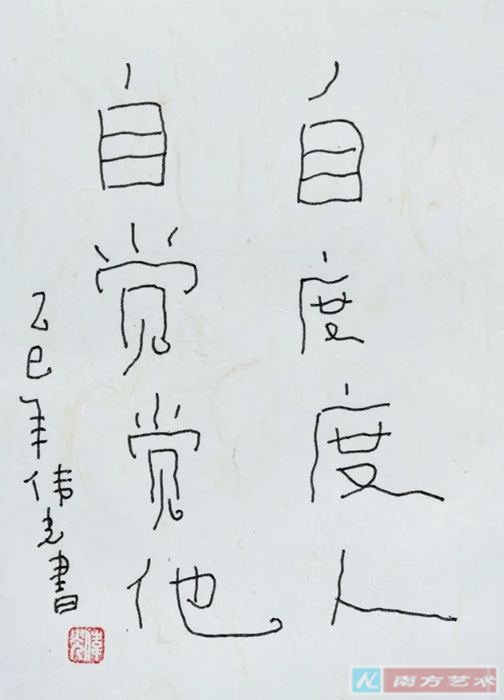 自度度人
自觉觉他
乙巳年伟光書
南方艺术